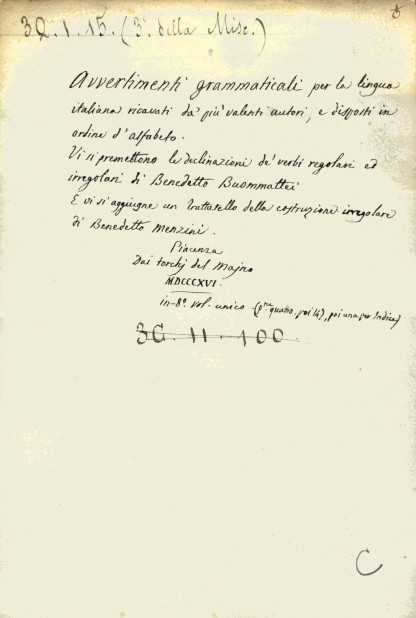 3Q.1.15. (3° della Misc.)
Avvertimenti grammaticali per la lingua
italiana ricavati da' più valenti autori, e disposti in
ordine d'alfabeto.
Vi si premettono le declinazioni de' verbi regolari ed
irregolari di Benedetto Buommattei
E vi si aggiugne un trattatello della costruzione irregolare
di Benedetto Menzini.
Piacenza
Dai torchj del Majno
MDCCCXVI.
in-8° vol. unico (pne quattro. poi 147, poi una per Indice)
3G.11.100
C